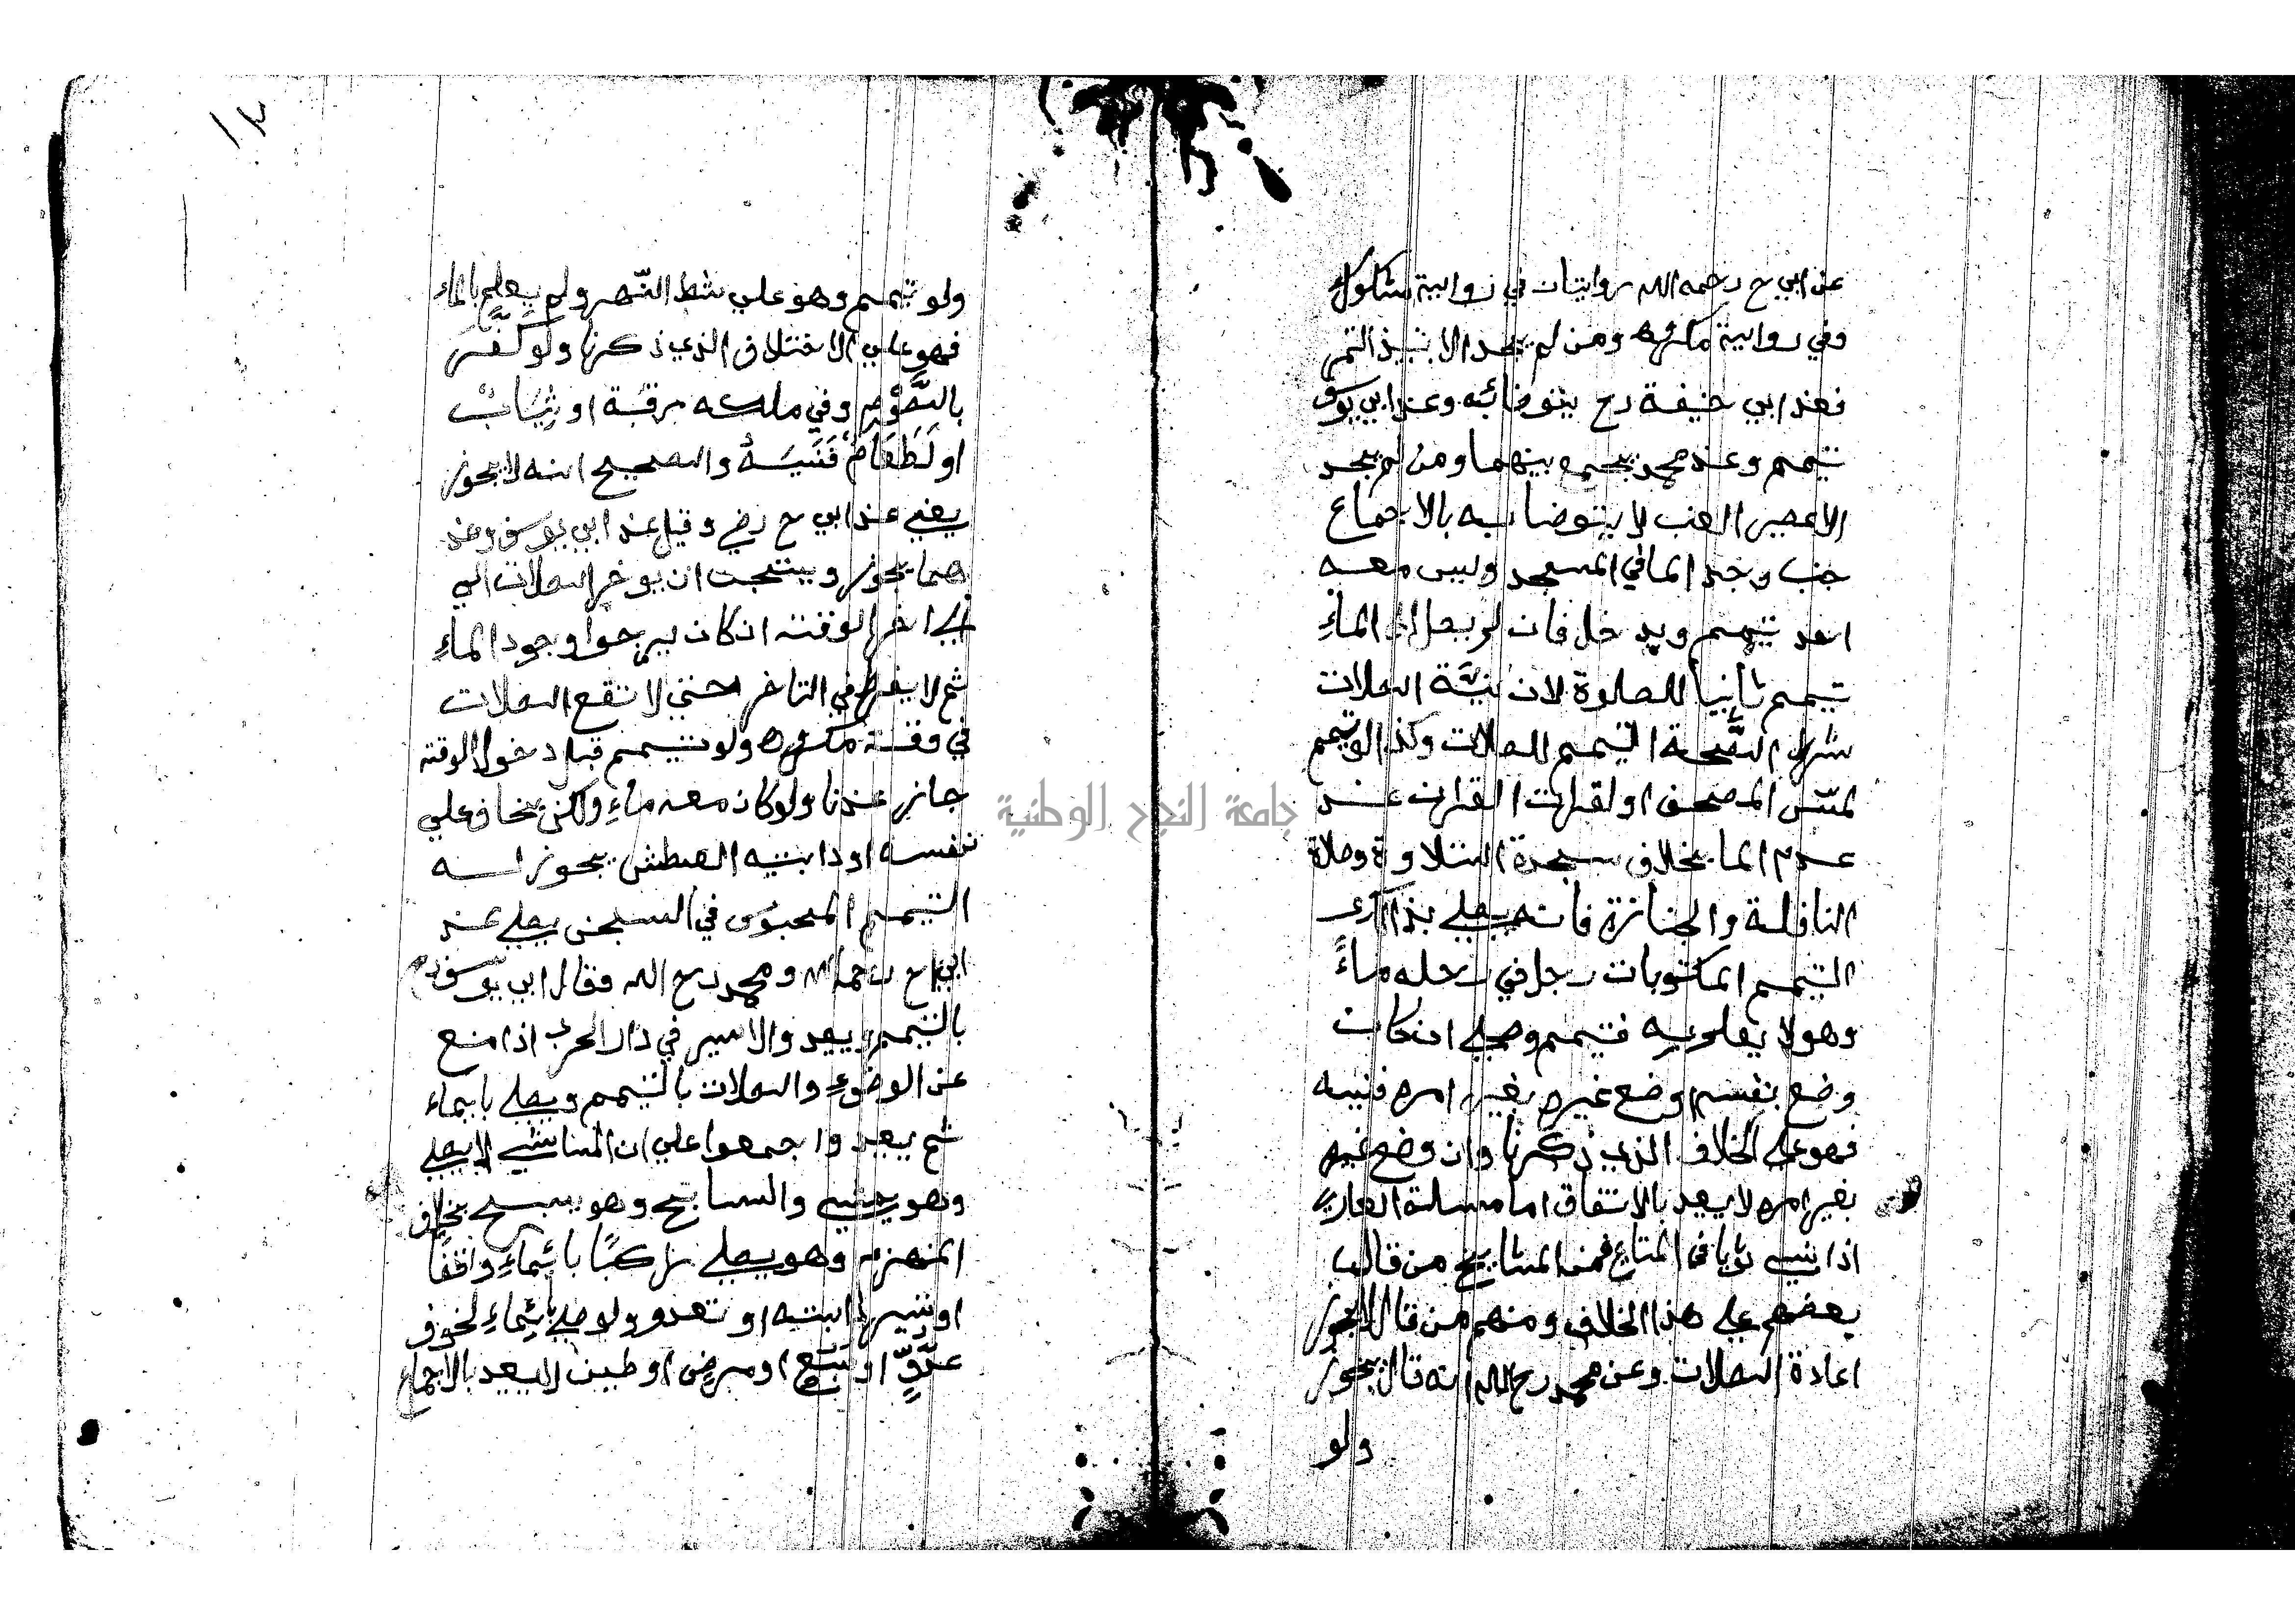 عن ابي ح رحمه الله روايتان في رواية مشكوك
وفي رواية مكروه ومن لم يجد الا نبيذ التمر
فعند ابي حنيفة رح يتوضائبه وعند ابي يوسف
تيمم وعند محمد يجمع بينهما ومن لم يجد
الاعصير العنب لا يتوضا به بالاجماع
جنب وجد الما في المسجد وليس معه
احد تيمم ويدخل فان لم يصل الى الماءِ
تيمم ثأنياً للصلوة لان نيّة الصلات
شرط الصّحة التيمم للصلات وكذا لو تيمم
لمسّ المصحف او لقرات القران عند
عدم الما بخلاف سجدة التلاوة وصلاة
النافلة والجنازة فانه يصلي بذا
التيمم المكتوبات رجل في رحله ماءً
وهو لا يعلم به فتيمم وصلى ان كان
وضع بنفسه او وضع غيره بغير امره فنيسه
فهو على الخلاف الذي ذكرنا وان وضع غيره
بغير امره لا يعيد بالاتفاق اما مسلة العاري
اذا نسي ثوبا في المتاع فمن المشايخ من قال
بعضهم على هذا الخلاف ومنهم من قال لايجوز
اعادة الصلات وعن محمد رح الله انه قال يجوز
ولو
ولو تيمم وهو علي شط النّهر ولم يعلم بالماء
فهو علي الاختلاف الذي ذكرنا ولو كفّر
بالصَّوْم وفي ملكه رقبة او ثياب
او لطعام فنسيه والصحيح انه لا يجوز
يعني عند ابي ح رضي وقيل عند ابي يوسف وعند
هما يجوز ويستحب ان يوخر الصلات الي
الي اخر الوقته ان كان يرجوا وجود الماءِ
ثم لا يفرط في التاخر حتي لا تقع الصلات
في وقته مكروه ولو تيمم قبل دخول الوقته
جايز عندنا ولو كان معه ماءِ ولكن يخاف علي
نفسه او دابته العطش يجوز له
التيمم المحبوس في السجن يصلي عند
ابي ح رحمه الله ومحمد رح الله فقال ابي يوسف
بالتيمم ويعيد والاسير في دار الحرب اذا منع
عن الوضوءِ والصلات بالتيمم ويصلي بايماء
ثم يعيد واجمعوا علي ان الماشي لا يصلي
وهو يمشي والسابح وهو يسبح بخلاف
المنهزم وهو يصلي راكبًا بائماءِ واقفًا
او تسير دابته او تعدو ولو صلي بائماءِ لخوف
عدّوٍّ او سَبُع او مرضٍ او طين لا يعيد بالاجماع
جامعة النجاح الوطنية